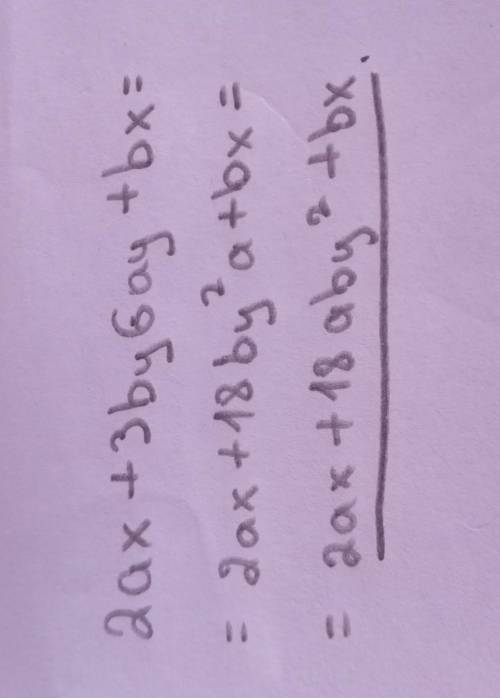 2ax + 3by6ay + bx =
= 2ax + 18by²a + bx =
= 2ax + 18aby² + bx.